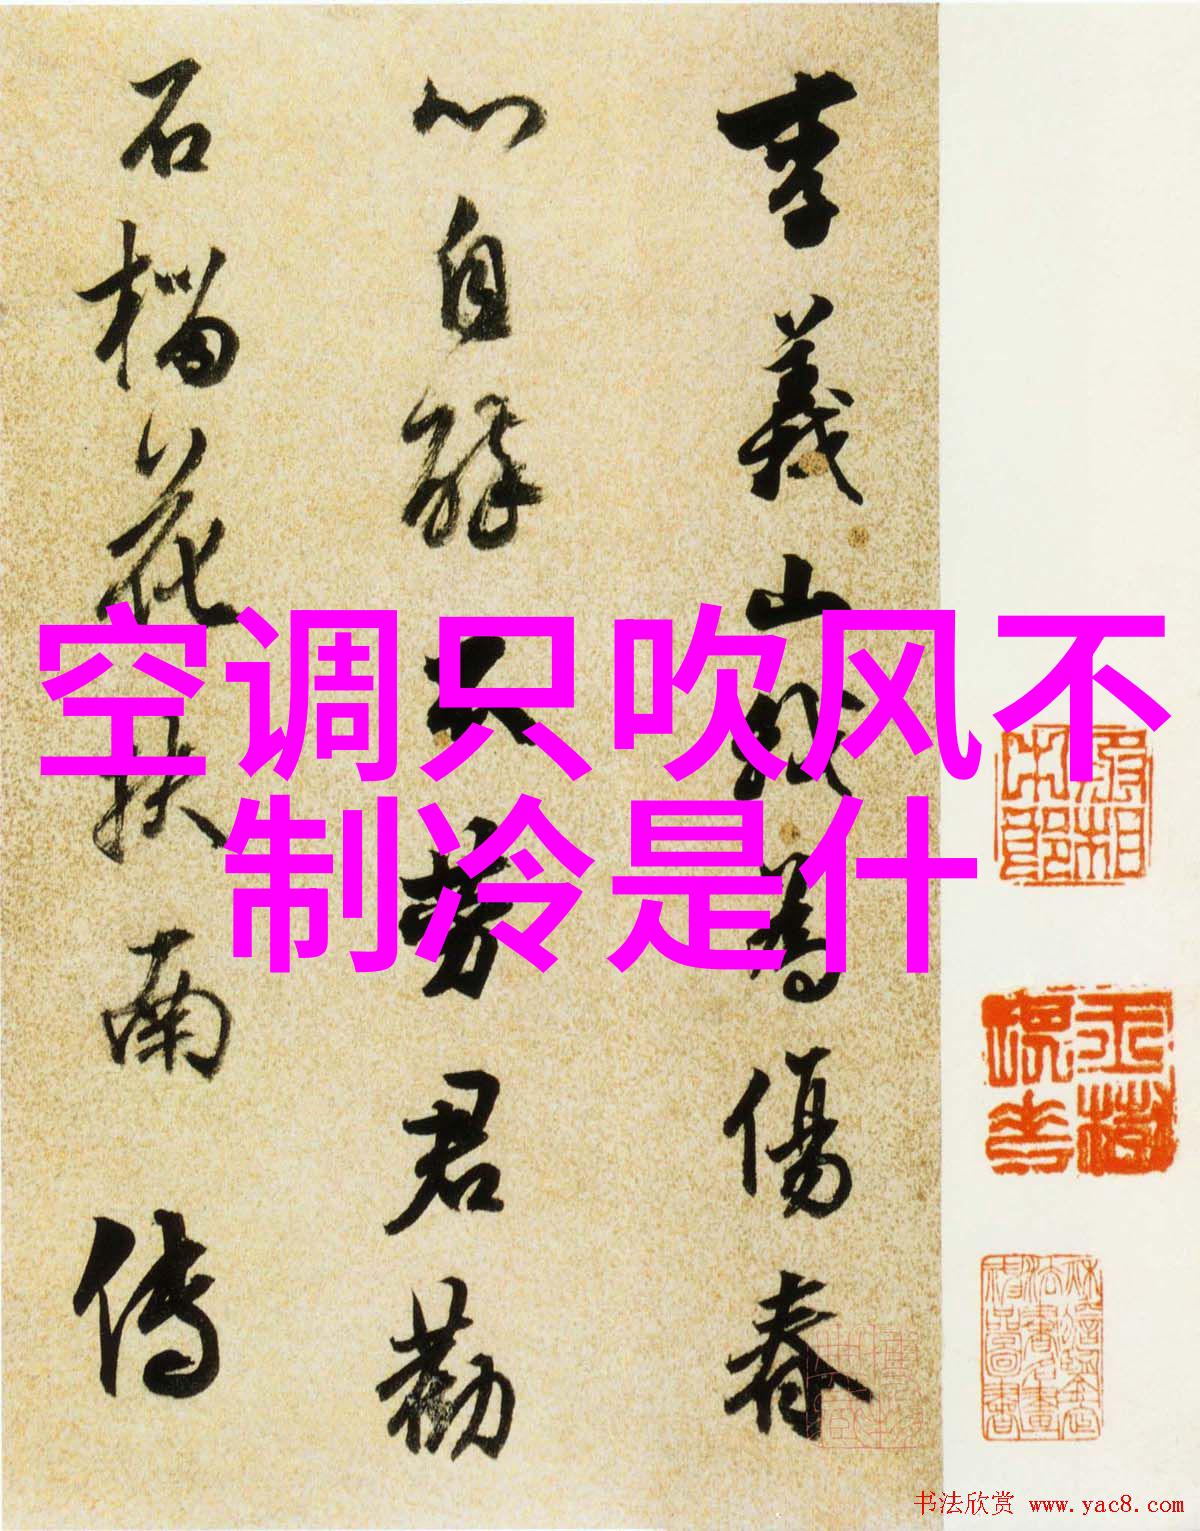 李義山我為傷春
心自醉不勞君勸
石榴花扶南傳
空调只吹风不
制冷是什
书法欣赏 www.yac8.com